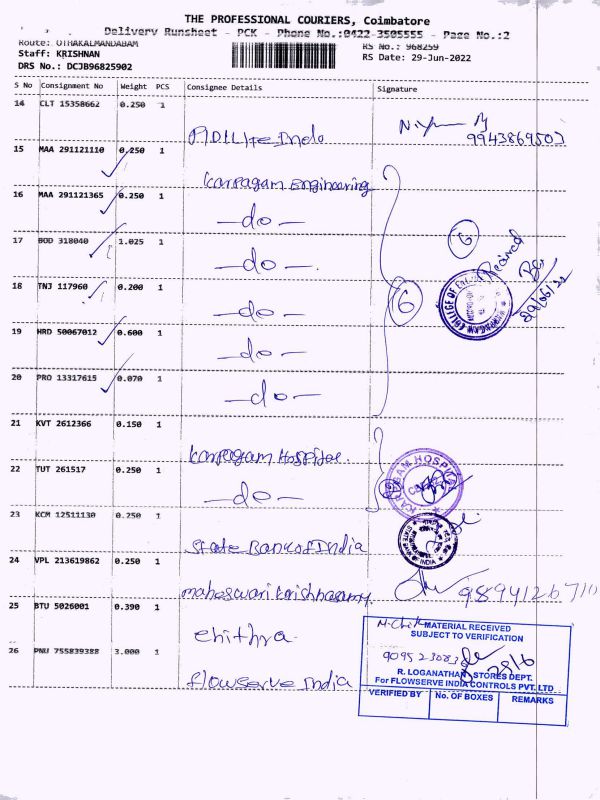 THE PROFESSIONAL COURIERS, Coimbatore
Delivery Runsheet - PCK - Phone No.:0422-3505555 - Page No.:2
Route: OTHAKALMANDABAM
RS No.: 968259
Staff: KRISHNAN
RS Date: 29-Jun-2022
DRS No.: DCJB96825902
S No Consignment No Weight PCS Consignee Details Signature
14 CLT 15358662 0.250 1
Pidilite Indo
9943869507
15 MAA 291121110 0.250 1
Karpagam Engineering
16 MAA 291121365 0.250 1
—do—
17 BOD 318040 1.025 1
—do—.
6
Received
18 TNJ 117960 0.200 1
—do—
6
19 HRD 50067012 0.600 1
—do—
20 PRO 13317615 0.070 1
—do—
21 KVT 2612366 0.150 1
Karpagam Hospital.
KARPAGAM HOSPITAL
22 TUT 261517 0.250 1
—do—
23 KCM 12511130 0.250 1
State Bank of India
24 VPL 213619862 0.250 1
maheswari krishnasamy.
9894126710
25 BTU 5026001 0.390 1
chithra
MATERIAL RECEIVED
SUBJECT TO VERIFICATION
26 PNU 755839388 3.000 1
Flowserve India
R. LOGANATHAN STORES DEPT.
For FLOWSERVE INDIA CONTROLS PVT. LTD
VERIFIED BY No. OF BOXES REMARKS